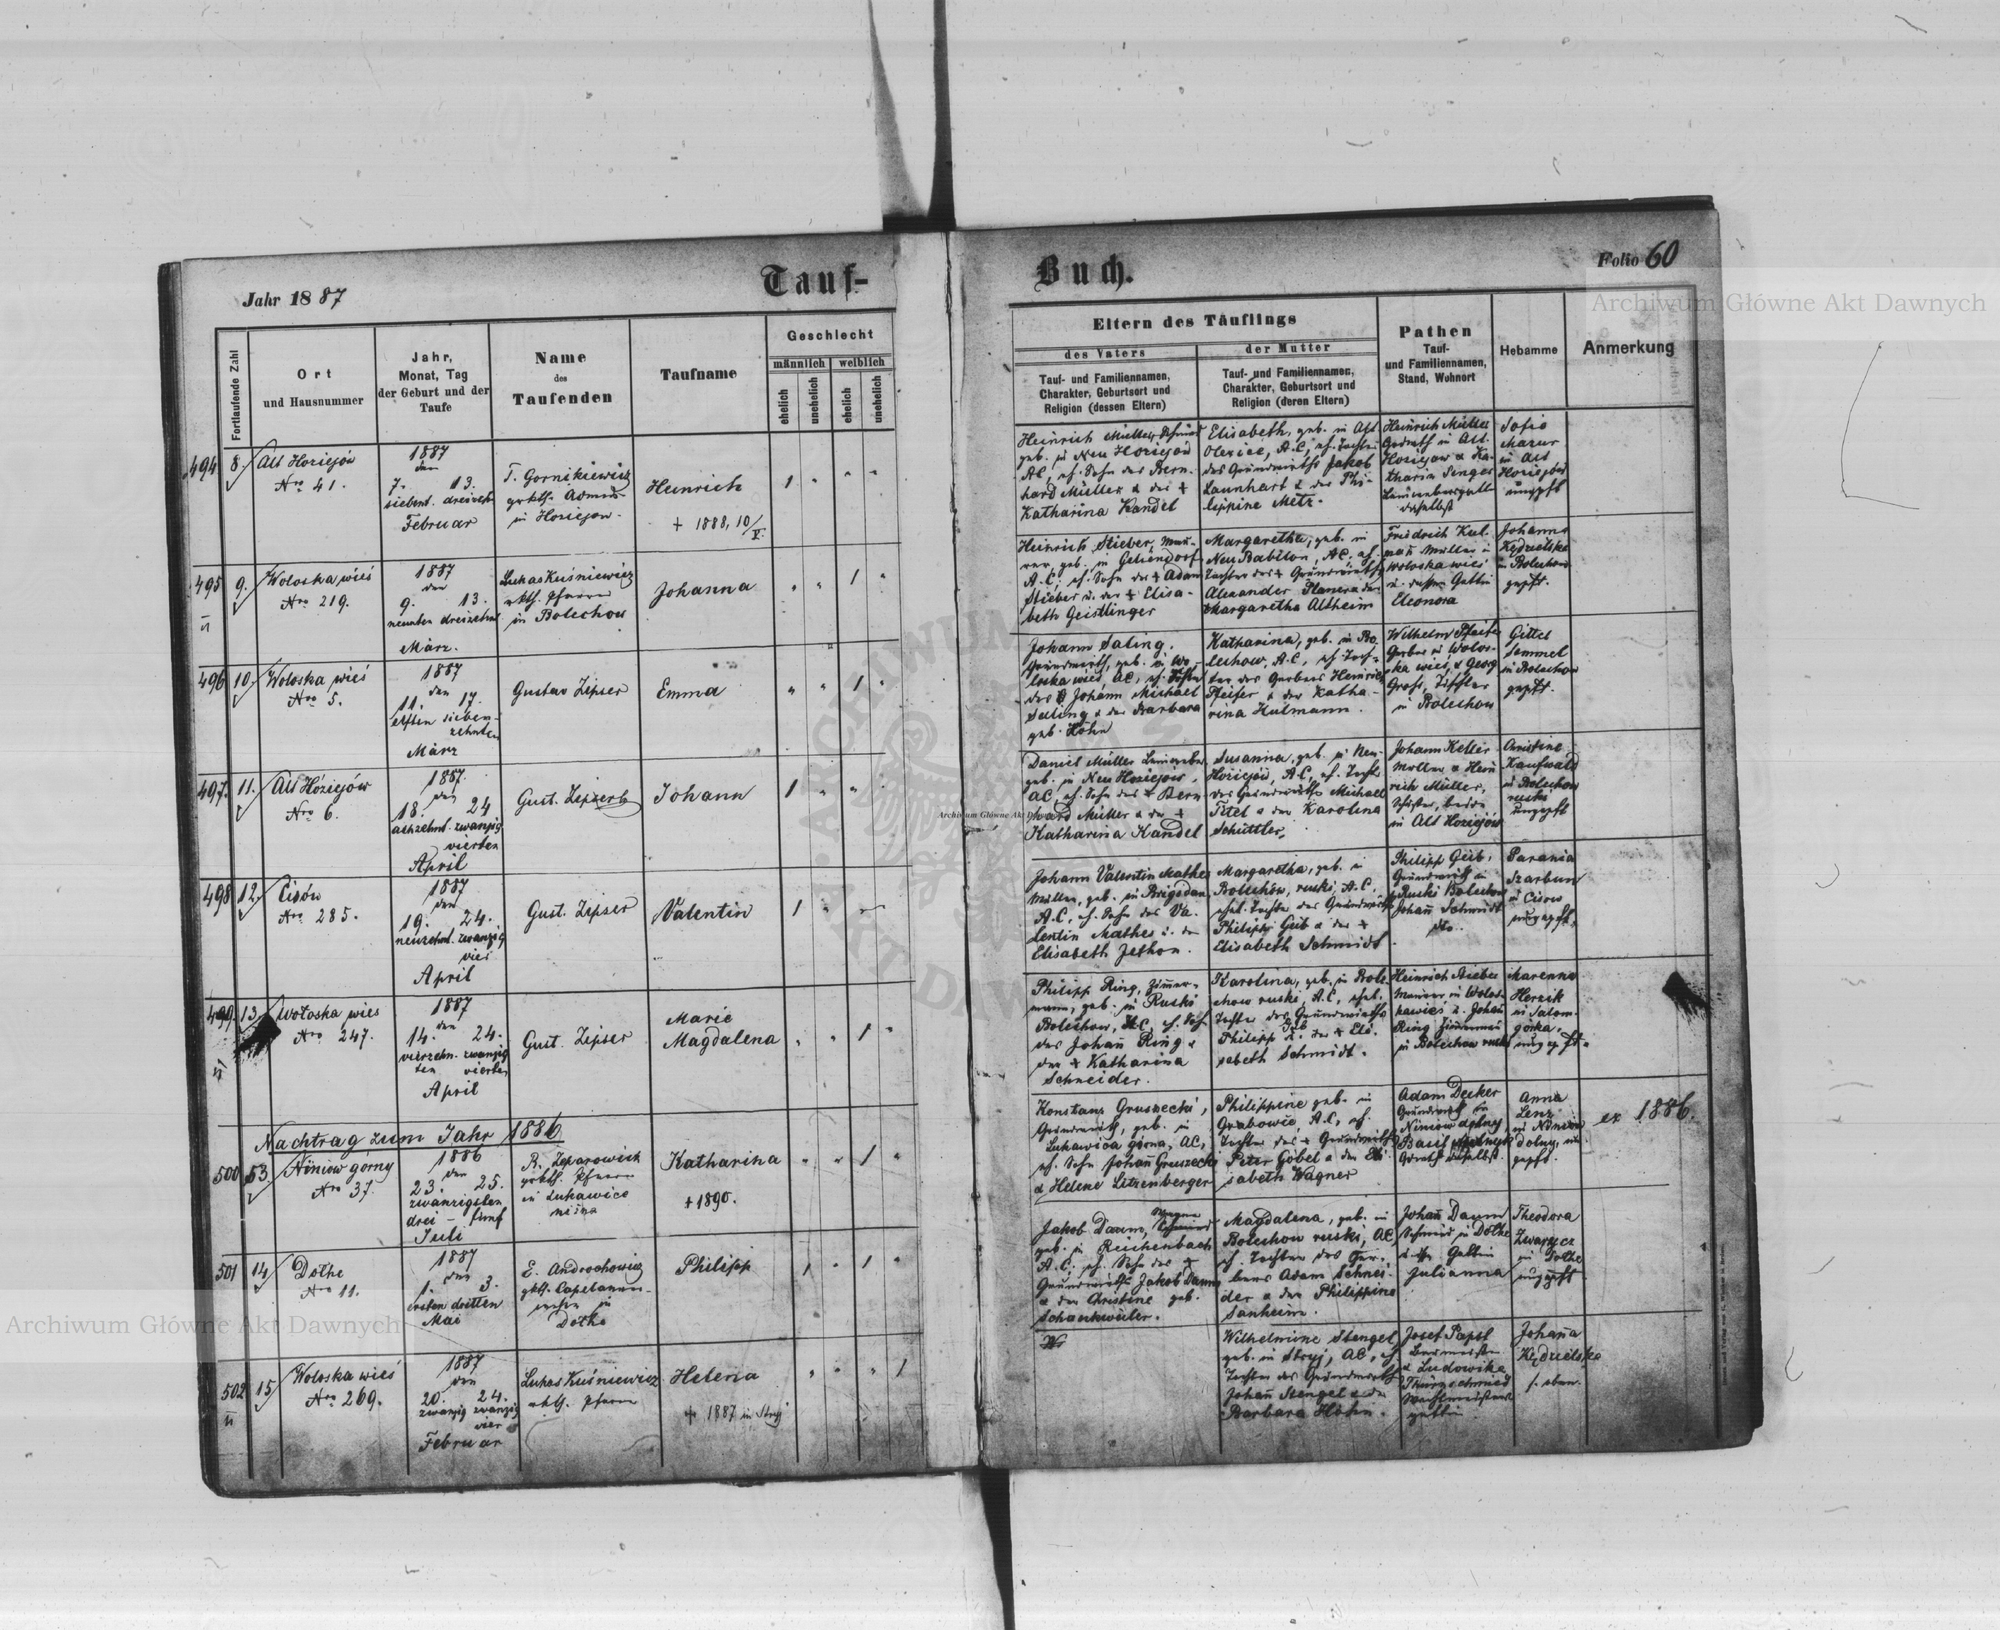 Jahr 1887
Tauf-
Buch.
Folio 60
Fortlaufende Zahl
Ort
und Hausnummer
Jahr,
Monat, Tag
der Geburt und der
Taufe
Name
des
Taufenden
Taufname
Geschlecht
männlich weiblich
ehelich unehelich ehelich unehelich
Eltern des Täuflings
des Vaters
Tauf- und Familiennamen,
Charakter, Geburtsort und
Religion (dessen Eltern)
der Mutter
Tauf- und Familiennamen,
Charakter, Geburtsort und
Religion (deren Eltern)
Pathen
Tauf-
und Familiennamen,
Stand, Wohnort
Hebamme
Anmerkung
494 8.
Alt Hoziejów
Nro 41.
1887
den
7. 13.
siebent. dreizeh
Februar
T. Gornikiewicz
in Hoziejow.
Heinrich
+ 1888, 10/V.
1
Heinrich Müller,
geb. in Neu Hoziejów
AC, eh. Sohn des Bern-
hard Müller & der +
Katharina Kandel
Elisabeth, geb. in Alt
A.C, eh. Tochter
des Grundwirths Jakob
Launhart & der Phi-
lippine Metz.
Heinrich Müller
in Alt
Hoziejow & Ka-
tharina Singer
daselbst
Sofie
Mazur
in Alt
Hoziejów
ungepft
495 9.
II
Woloska wieś
Nro 219.
1887
den
9. 13.
neunten dreizehnt
März.
Lukas Kuśniewicz
rkth. Pfarrer
in Bolechow
Johanna
1
Heinrich Stieber, Mau-
rer, geb. in Gelsendorf
A.C, eh. Sohn des + Adam
Stieber u. der + Elisa-
beth Geistlinger
Margaretha, geb. in
Neu Babilon, AC, eh.
Tochter des + Grundwirths
Alexander
Margaretha Altheim
Friedrich Kul-
man Müller in
Woloska wieś
u. dessen Gattin
Eleonora
Johanna
Kędzielska
in Bolechow
gepft.
496 10.
Woloska wieś
Nro 5.
1887
den
11. 17.
elften sieben-
zehnten
März
Gustav Zipser
Emma
1
Johann Saling,
Grundwirth, geb. in Wo-
loska wieś, AC, eh. Sohn
des Johann Michael
Saling & der Barbara
geb. Höhn
Katharina, geb. in Bo-
lechow, A.C, eh Toch-
ter des Gerbers Heinrich
Pfeifer & der Katha-
rina Hulmann.
Wilhelm Pfeifer
Gerber in Wolos-
ka wieś, & Georg
Grohs, Tischler
in Bolechow
Gittel
Semmel
in Bolechow
gepft.
497. 11.
Alt Hoziejów
Nro 6.
1887.
den
18. 24
achzehnt. zwanzig
vierten
April
Gust. Zipser
Johann
1
Daniel Müller
geb. in Neu Hoziejów,
AC, eh. Sohn des + Bern
hard Müller & der +
Katharina Kandel
Susanna, geb. in Neu-
Hoziejów, A.C, eh. Tocht
des Grundwirths Michael
Titel & der Karolina
Schüttler,
Johann Keller
Müller & Hein
rich Müller,
Schuster, beide
in Alt Hoziejów
Christine
Kaufwald
in Bolechow
ruski
ungepft
498 12.
Cisów
Nro 285.
1887
den
19. 24.
neunzehnt. zwanzig
vier
April
Gust. Zipser
Valentin
1
Johann Valentin Mathes
Müller, geb. in Brigidau
A.C, eh. Sohn des Va-
lentin Mathes u. der
Elisabeth Jethon.
Margaretha, geb. in
Bolechów, ruski, A.C,
ehel. Tochter des Grundwirths
Philipp Geib & der +
Elisabeth Schmidt.
Philipp Geib,
Grundwirth in
Ruski Bolechow
Johann Schmidt
dto.
Parania
Szarbun
in Cisow
ungepft.
499 13.
II
Wołoska wies
Nro 247.
1887
den
14. 24.
vierzehn- zwanzig
ten vierten
April
Gust. Zipser
Marie
Magdalena
1
Philipp Ring, Zimmer-
mann, geb. in Ruski
Bolechow, AC, eh. Soh
des Johann Ring &
der + Katharina
Schneider.
Karolina, geb. in Bole-
chow ruski, A.C, ehel.
Tochter des Grundwirths
Philipp Geib & der + Eli-
sabeth Schmidt.
Heinrich Stieber
Maurer in Wolos-
kawies u. Johan
Ring Zimmerman
in Bolechow ruski
Marenna
Herzik
in Salom-
gorka,
ungepft.
Nachtrag zum Jahr 1886
500 53.
Niniow górny
Nro 37.
1886
den
23. 25.
zwanzigsten
drei - fünf
Juli
R. Zeparowich
grkth. Pfarrer
in Lukawica
niżna
Katharina
+ 1890.
1
Konstanz Gruszecki,
Grundwirth, geb. in
Lukawica górna, AC,
eh. Sohn Johann Gruszecki
& Helene Litzenberger
Philippine geb. in
Grabowie, A.C, eh.
Tochter des + Grundwirths
Peter Göbel & der Eli-
sabeth Wagner
Adam Decker
Grundwirth in
Niniow dolny,
Basil
daselbst.
Anna
Lenz
in Niniow
dolny, un-
gepft.
ex 1886.
501 14.
Dołhe
Nro 11.
1887
den
1. 3.
ersten dritten
Mai
E. Androchowicz
grkth.
in
Dołhe
Philipp
1 1
Jakob Daum, Wagner
geb. in Reichenbach
A.C, eh. Sohn des +
Grundwirths Jakob Daum
& der Christine geb.
Schankweiler.
Magdalena, geb. in
Bolechow ruski, AC,
eh. Tochter des Ger-
bers Adam Schnei-
der & der Philippine
Sanheim.
Johann Daum
Schmied in Dołhe
& Gattin
Julianna
Theodora
Zwarycz
in Dołhe
ungepft.
502 15.
II
Woloska wieś
Nro 269.
1887
den
20. 24.
zwanzig zwanzig
vier
Februar
Lukas Kuśniewicz
rkth. Pfarrer
Helena
+ 1887 in Stryj
1
Wilhelmine Stengel
geb. in Stryj, AC, eh
Tochter des Grundwirths
Johann Stengel & der
Barbara Höhn.
Josef Papst
& Ludowika
Thürrschmied
gattin
Johanna
Kędzielska
s. oben.
Archiwum Główne Akt Dawnych
Archiwum Główne Akt Dawnych
Archiwum Główne Akt Dawnych